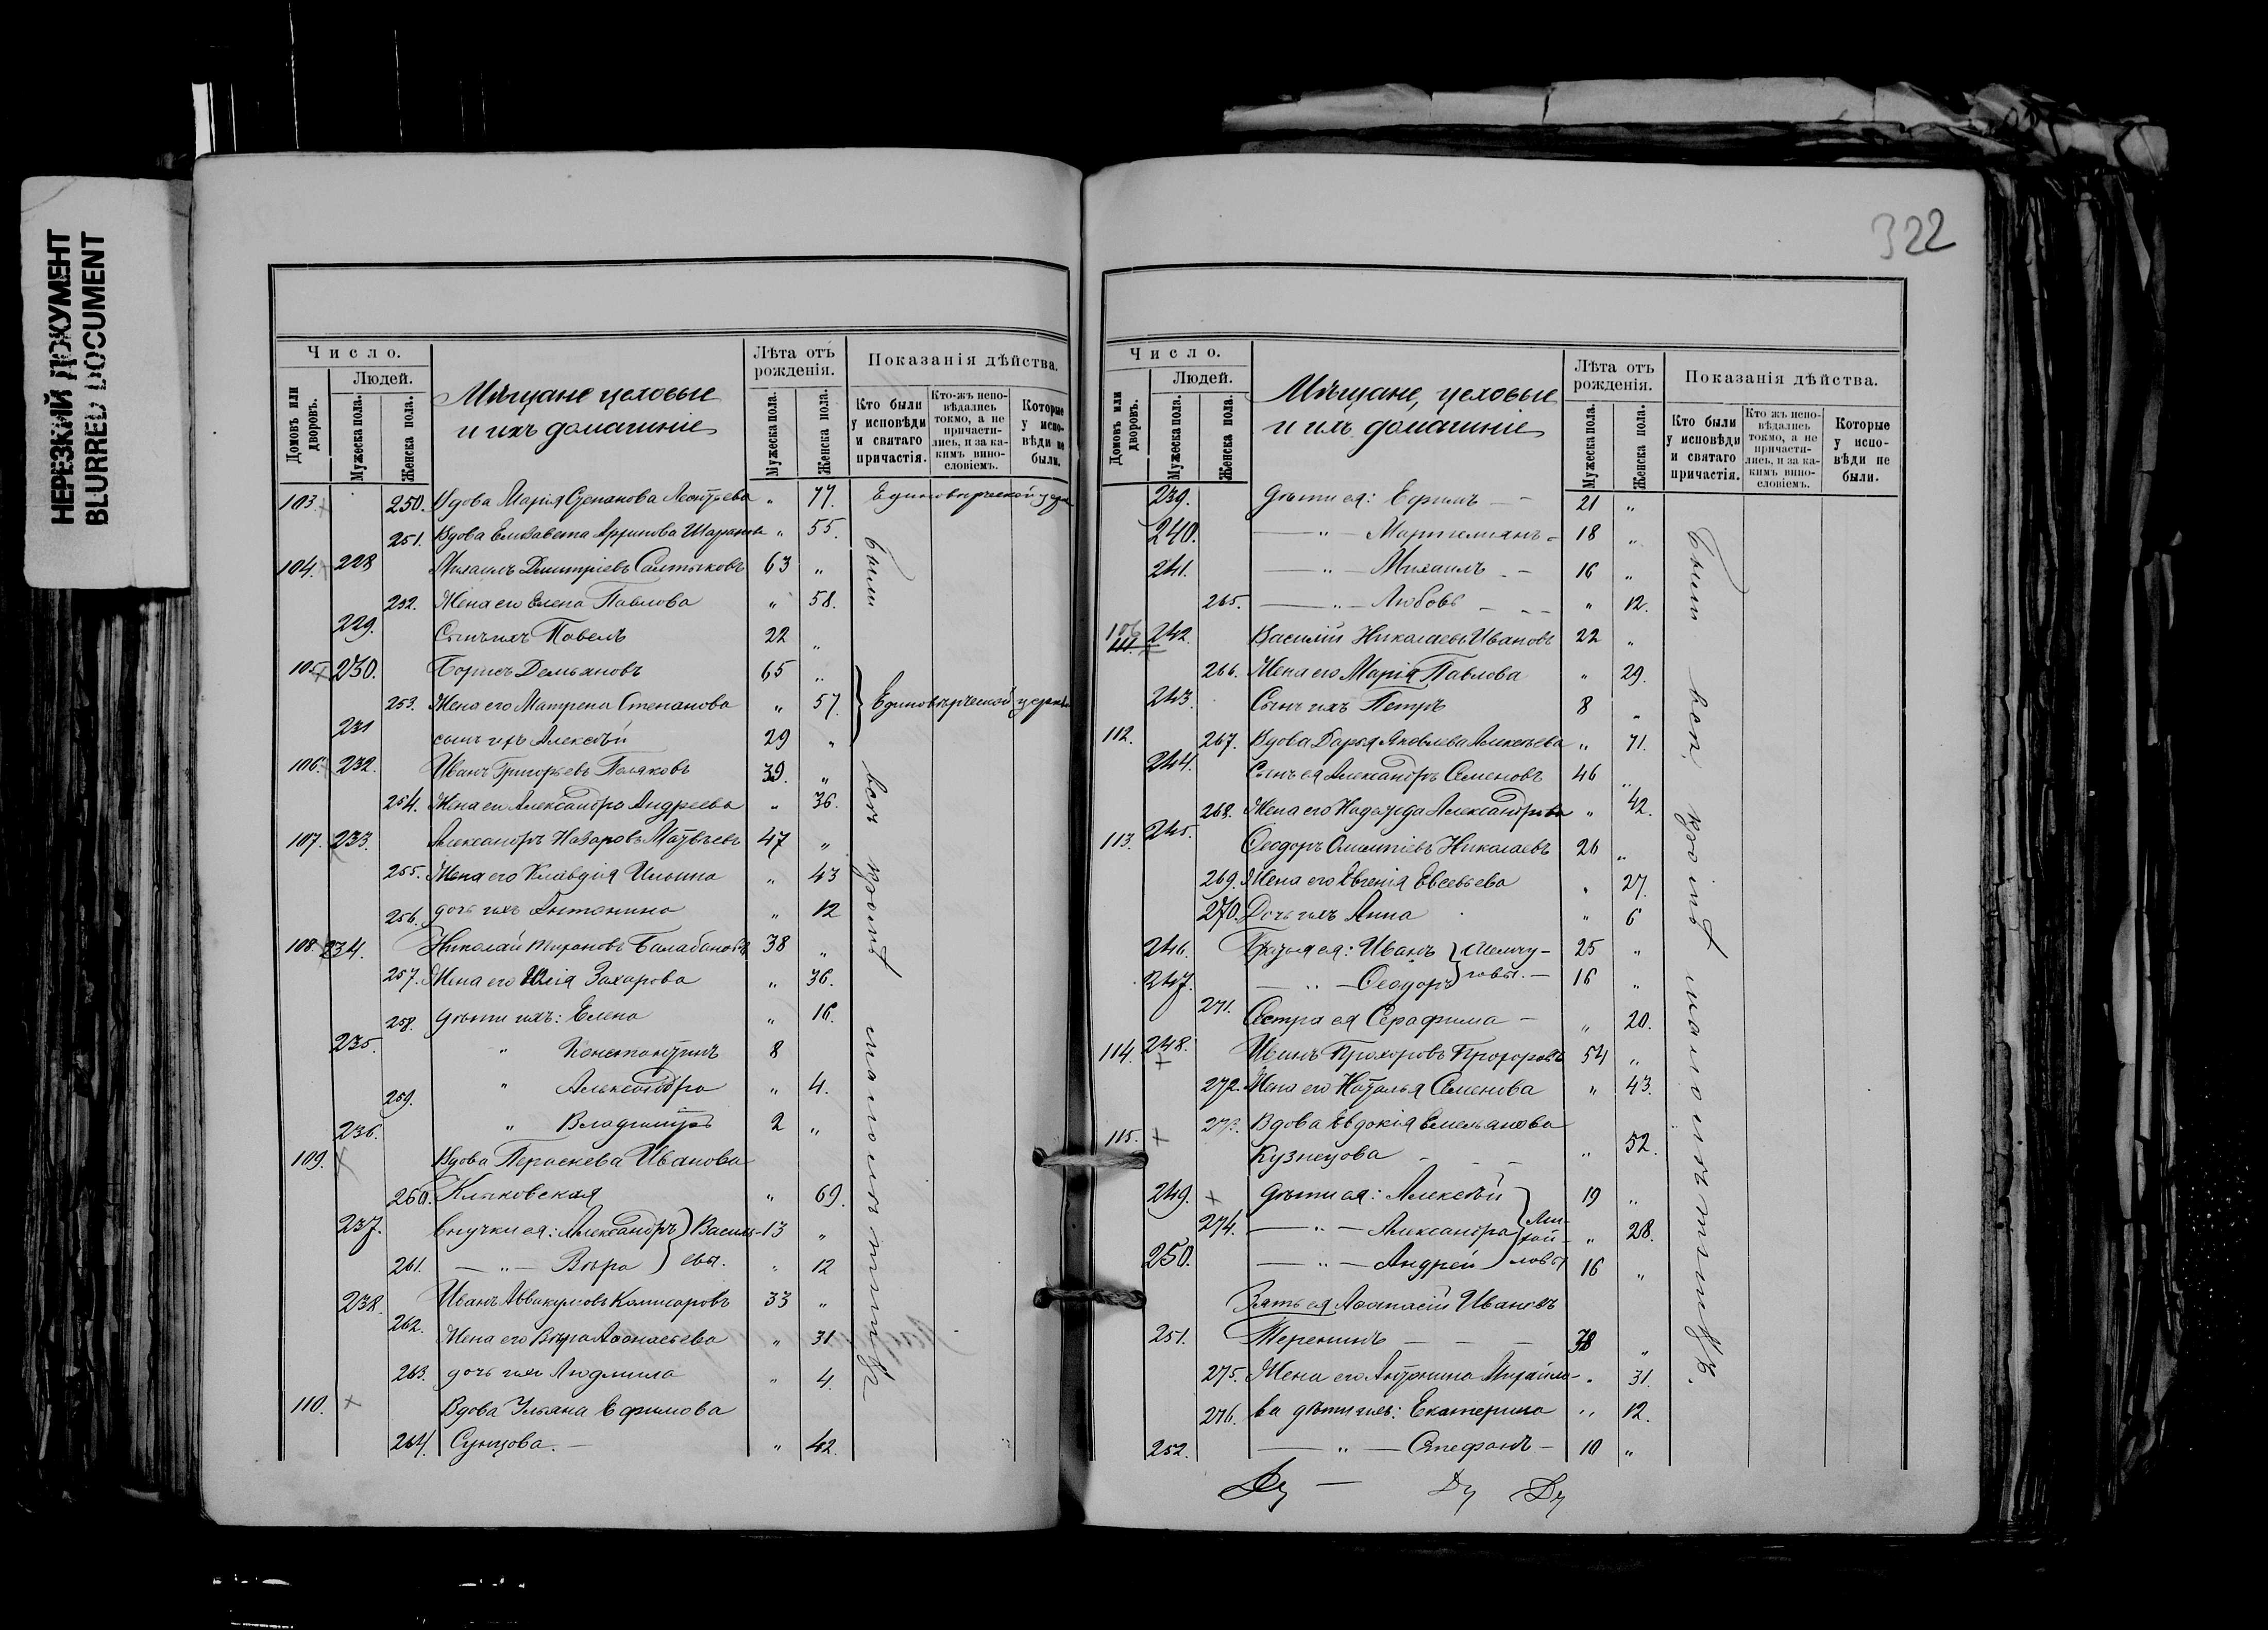 НЕРЕЗКИЙ ДОКУМЕНТ
BLURRED DOCUMENT
Число.
Людей.
Домовъ или дворовъ.
Мужеска пола.
Женска пола.
Мѣщане цеховые
и ихъ домашніе
Лѣта отъ рожденія.
Мужеска пола.
Женска пола.
Показанія дѣйства.
Кто были у исповѣди и святаго причастія.
Кто-жъ исповѣдались токмо, а не причастились, и за какимъ винословіемъ.
Которые у исповѣди не были.
103. 250. Вдова Марія Степанова Леонтьева „ 77. Единовѣрческой церк
251. Вдова Елизавета „ 55.
104. 228 Михаилъ Дмитріевъ Салтыковъ 63 „
252. Жена его Елена Павлова „ 58.
229. Сынъ ихъ Павелъ 22 „
105 230. Борисъ Демьяновъ 65 „
253. Жена его Матрена Степанова „ 57. Единовѣрческой церкви
231 сынъ ихъ Алексѣй 29 „
106. 232. Иванъ Григорьевъ Поляковъ 39. „
254. Жена его Александра Андреева „ 36.
107. 233. Александръ Назаровъ Матвѣевъ 47 „
255. Жена его Клавдія Ильина „ 43
256. дочь ихъ Антонина „ 12
108. 234. Николай Мироновъ Балабановъ 38 „
257. Жена его Юлія Захарова „ 36.
258. дѣти ихъ: Елена „ 16.
235. „ Константинъ 8
259. „ Александра „ 4.
236. „ Владиміръ 2 „
109. Вдова Параскева Иванова
260. Клыковская „ 69.
237. внучки ея: Александръ } Василь- 13 „
261. — „ — Вѣра } евы. „ 12
238. Иванъ Аввакумовъ Комисаровъ 33 „
262. Жена его Вѣра Аѳонасьева „ 31
263. дочь ихъ Людмила „ 4.
110. Вдова Ульяна Ефимова
264. Сунцова. — „ 42.
были всѣ кромѣ малолѣтнихъ
322
Число.
Людей.
Домовъ или дворовъ.
Мужеска пола.
Женска пола.
Мѣщане, цеховые
и ихъ домашніе
Лѣта отъ рожденія.
Мужеска пола.
Женска пола.
Показанія дѣйства.
Кто были у исповѣди и святаго причастія.
Кто жъ исповѣдались токмо, а не причастились, и за какимъ винословіемъ.
Которые у исповѣди не были.
239. дѣти ея: Ефимъ — 21 „
240. — „ — Мартиміянъ — 18 „
241. — „ — Михаилъ — 16 „
265. — „ — Любовь — „ 12.
106 111. 242. Василій Николаевъ Ивановъ 22 „
266. Жена его Марія Павлова „ 29.
243. Сынъ ихъ Петръ 8 „
112. 267. Вдова Дарья Яковлева Алексѣева „ 71.
244. Сынъ ея Александръ Семеновъ 46 „
268. Жена его Надежда Александрова „ 42.
113. 245. Ѳеодоръ Олимпіевъ Николаевъ 26 „
269. Жена его Евгенія Евсевьева „ 27.
270. Дочь ихъ Анна „ 6
246. Братья ея: Иванъ } — 25 „
247. — „ — Ѳеодоръ } 16 „
271. Сестра ея Серафима — „ 20.
114. 248. Иванъ Прохоровъ Прохоровъ 54 „
272. Жена его Наталья Семенова „ 43.
115. 273. Вдова Евдокія Емельянова
Кузнецова — „ 52.
249. дѣти ея: Алексѣй } 19 „
274. — „ — Александра } Ми- хай- „ 28.
250. — „ — Андрей } ловы 16 „
Зять ея Аѳанасій Ивановъ
251. Теренинъ — 38 „
275. Жена его Антонина Михайло- „ 31.
276. ва дѣти ихъ: Екатерина „ 12.
252. — „ — Стефанъ — 10 „
были всѣ кромѣ малолѣтнихъ.